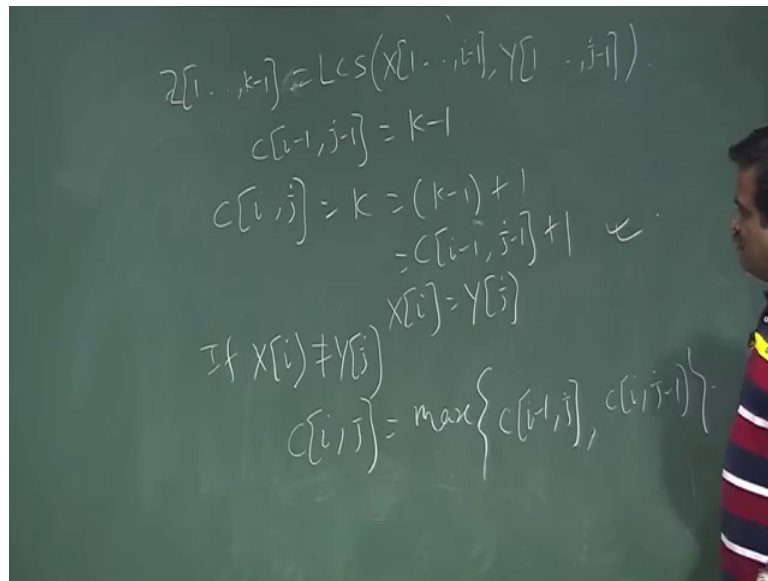 Z[1..,k-1] = LCS(X[1..,i-1], Y[1..,j-1]).
C[i-1, j-1] = k-1
C[i, j] = k = (k-1) + 1
= C[i-1, j-1] + 1
X[i] = Y[j]
If X[i] ≠ Y[j]
C[i, j] = max{ C[i-1, j], C[i, j-1] }.